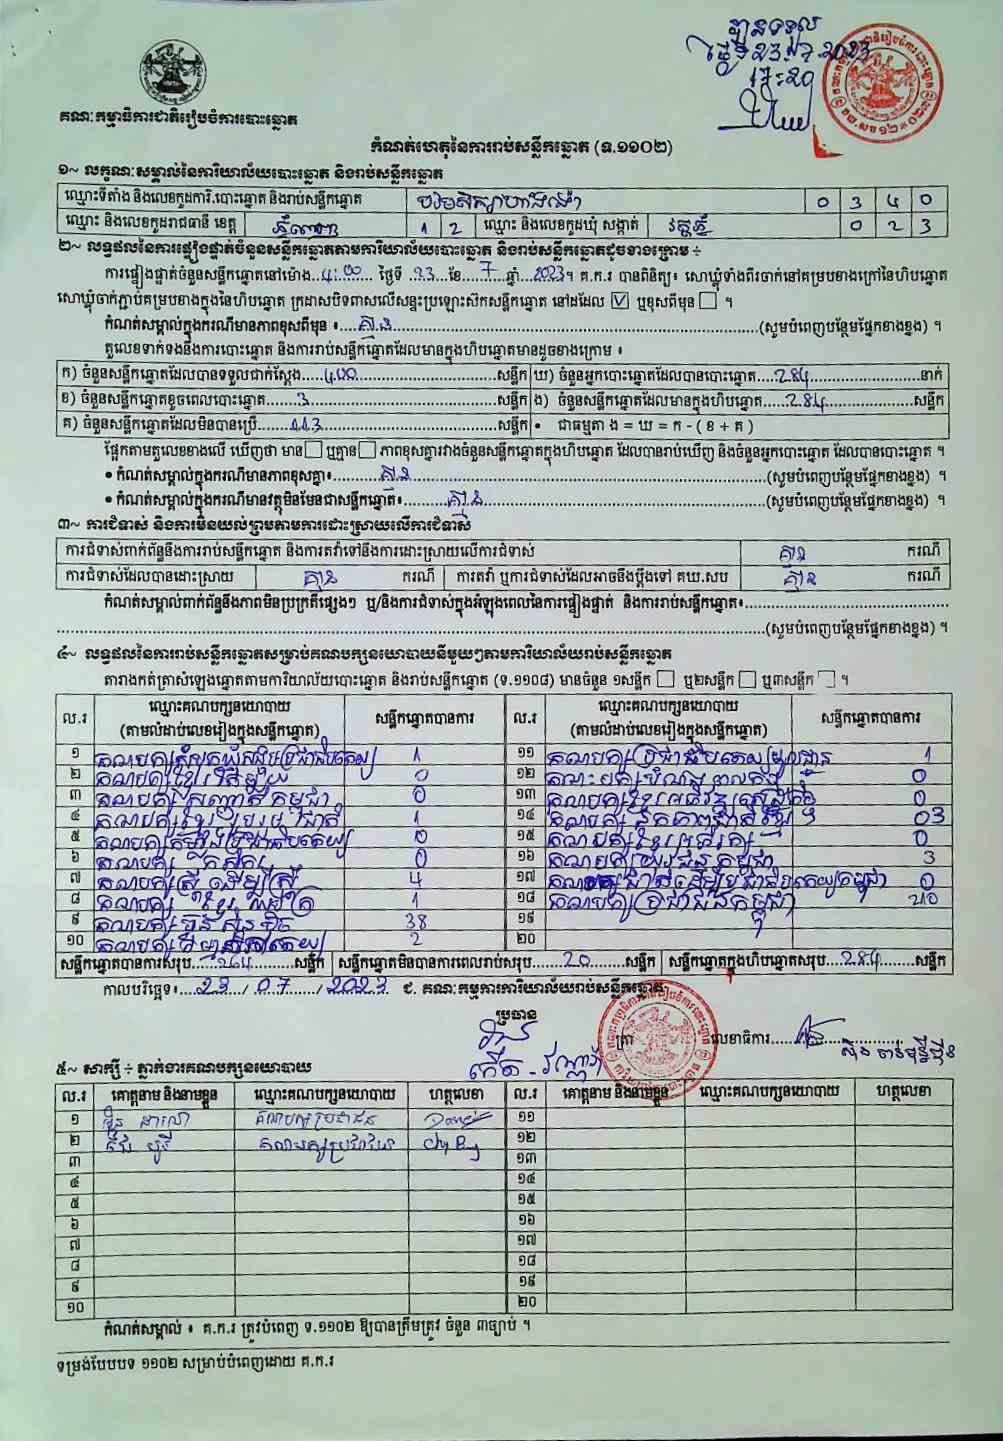 បានទទួល
ថ្ងៃទី 23.7.2023
17:20
គណៈកម្មាធិការជាតិរៀបចំការបោះឆ្នោត
កំណត់ហេតុនៃការរាប់សន្លឹកឆ្នោត (ទ.១១០២)
១~ លក្ខណៈសម្គាល់នៃការិយាល័យបោះឆ្នោត និងរាប់សន្លឹកឆ្នោត
ឈ្មោះទីតាំង និងលេខកូដការិ.បោះឆ្នោត និងរាប់សន្លឹកឆ្នោត 0 3 4 0
ឈ្មោះ និងលេខកូដរាជធានី ខេត្ត ភ្នំពេញ 1 2 ឈ្មោះ និងលេខកូដឃុំ សង្កាត់ វត្តភ្នំ 0 2 3
២~ លទ្ធផលនៃការផ្ទៀងផ្ទាត់ចំនួនសន្លឹកឆ្នោតតាមការិយាល័យបោះឆ្នោត និងរាប់សន្លឹកឆ្នោតដូចខាងក្រោម ÷
ការផ្ទៀងផ្ទាត់ចំនួនសន្លឹកឆ្នោតនៅម៉ោង...4:00 ថ្ងៃទី 23 ខែ 7 ឆ្នាំ 2023។ គ.ក.រ បានពិនិត្យ៖ សោឃ្លុំទាំងពីរចាក់នៅគម្របខាងក្រៅនៃហិបឆ្នោត
សោឃ្លុំចាក់ភ្ជាប់គម្របខាងក្នុងនៃហិបឆ្នោត ក្រដាសបិទពាសលើសន្ទះប្រឡោះស៊កសន្លឹកឆ្នោត នៅដដែល ☑ ឬខុសពីមុន ☐ ។
កំណត់សម្គាល់ក្នុងករណីមានភាពខុសពីមុន ៖ គ្មាន (សូមបំពេញបន្ថែមផ្នែកខាងខ្នង) ។
តួលេខទាក់ទងនឹងការបោះឆ្នោត និងការរាប់សន្លឹកឆ្នោតដែលមានក្នុងហិបឆ្នោតមានដូចខាងក្រោម ៖
ក) ចំនួនសន្លឹកឆ្នោតដែលបានទទួលជាក់ស្តែង 400 សន្លឹក ឃ) ចំនួនអ្នកបោះឆ្នោតដែលបានបោះឆ្នោត 284 នាក់
ខ) ចំនួនសន្លឹកឆ្នោតខូចពេលបោះឆ្នោត 3 សន្លឹក ង) ចំនួនសន្លឹកឆ្នោតដែលមានក្នុងហិបឆ្នោត 284 សន្លឹក
គ) ចំនួនសន្លឹកឆ្នោតដែលមិនបានប្រើ 113 សន្លឹក • ជាធម្មតា ង = ឃ = ក - ( ខ + គ )
ផ្អែកតាមតួលេខខាងលើ ឃើញថា មាន ☐ ឬគ្មាន ☐ ភាពខុសគ្នារវាងចំនួនសន្លឹកឆ្នោតក្នុងហិបឆ្នោត ដែលបានរាប់ឃើញ និងចំនួនអ្នកបោះឆ្នោត ដែលបានបោះឆ្នោត ។
• កំណត់សម្គាល់ក្នុងករណីមានភាពខុសគ្នា៖ គ្មាន (សូមបំពេញបន្ថែមផ្នែកខាងខ្នង) ។
• កំណត់សម្គាល់ក្នុងករណីមានវត្ថុមិនមែនជាសន្លឹកឆ្នោត៖ គ្មាន (សូមបំពេញបន្ថែមផ្នែកខាងខ្នង) ។
៣~ ការជំទាស់ និងការមិនយល់ព្រមតាមការដោះស្រាយលើការជំទាស់
ការជំទាស់ពាក់ព័ន្ធនឹងការរាប់សន្លឹកឆ្នោត និងការតវ៉ាទៅនឹងការដោះស្រាយលើការជំទាស់ គ្មាន ករណី
ការជំទាស់ដែលបានដោះស្រាយ គ្មាន ករណី ការតវ៉ា ឬការជំទាស់ដែលអាចនឹងប្តឹងទៅ គឃ.សប គ្មាន ករណី
កំណត់សម្គាល់ពាក់ព័ន្ធនឹងភាពមិនប្រក្រតីផ្សេងៗ ឬ/និងការជំទាស់ក្នុងអំឡុងពេលនៃការផ្ទៀងផ្ទាត់ និងការរាប់សន្លឹកឆ្នោត៖
(សូមបំពេញបន្ថែមផ្នែកខាងខ្នង) ។
៤~ លទ្ធផលនៃការរាប់សន្លឹកឆ្នោតសម្រាប់គណបក្សនយោបាយនីមួយៗតាមការិយាល័យរាប់សន្លឹកឆ្នោត
តារាងកត់ត្រាសំឡេងឆ្នោតតាមការិយាល័យបោះឆ្នោត និងរាប់សន្លឹកឆ្នោត (ទ.១១០៨) មានចំនួន ១សន្លឹក ☐ ឬ២សន្លឹក ☐ ឬ៣សន្លឹក ☐ ។
ល.រ ឈ្មោះគណបក្សនយោបាយ (តាមលំដាប់លេខរៀងក្នុងសន្លឹកឆ្នោត) សន្លឹកឆ្នោតបានការ ល.រ ឈ្មោះគណបក្សនយោបាយ (តាមលំដាប់លេខរៀងក្នុងសន្លឹកឆ្នោត) សន្លឹកឆ្នោតបានការ
១ គណបក្សសំបុកឃ្មុំសង្គមប្រជាធិបតេយ្យ 1 ១១ គណបក្សប្រជាធិបតេយ្យមូលដ្ឋាន 1
២ គណបក្សខ្មែរ 0 ១២ គណបក្ស 0
៣ គណបក្សសញ្ជាតិកម្ពុជា 0 ១៣ គណបក្សខ្មែរអភិវឌ្ឍន៍សេដ្ឋកិច្ច 0
៤ គណបក្សខ្មែររួបរួមជាតិ 1 ១៤ គណបក្សឯកភាពជាតិខ្មែរ 03
៥ គណបក្សកម្លាំងប្រជាធិបតេយ្យ 0 ១៥ គណបក្សខ្មែរអភិរក្ស 0
៦ គណបក្សកសិករ 0 ១៦ គណបក្សយុវជនកម្ពុជា 3
៧ គណបក្សស្ត្រីដើម្បីស្ត្រី 4 ១៧ គណបក្សជាតិដើម្បីប្រជាធិបតេយ្យកម្ពុជា 0
៨ គណបក្សខ្មែរ 1 ១៨ គណបក្សប្រជាជនកម្ពុជា 210
៩ គណបក្សហ្វ៊ុនស៊ិនប៉ិច 38 ១៩
១០ គណបក្សធម្មាធិបតេយ្យ 2 ២០
សន្លឹកឆ្នោតបានការសរុប 264 សន្លឹក សន្លឹកឆ្នោតមិនបានការពេលរាប់សរុប 20 សន្លឹក សន្លឹកឆ្នោតក្នុងហិបឆ្នោតសរុប 284 សន្លឹក
កាលបរិច្ឆេទ៖ 23 / 07 / 2023 ជ. គណៈកម្មការការិយាល័យរាប់សន្លឹកឆ្នោត
ប្រធាន
ត្រា លេខាធិការ
៥~ សាក្សី ÷ ភ្នាក់ងារគណបក្សនយោបាយ
ល.រ គោត្តនាម និងនាមខ្លួន ឈ្មោះគណបក្សនយោបាយ ហត្ថលេខា ល.រ គោត្តនាម និងនាមខ្លួន ឈ្មោះគណបក្សនយោបាយ ហត្ថលេខា
១ គណបក្សប្រជាជន ១១
២ គណបក្សប្រជាជន ១២
៣ ១៣
៤ ១៤
៥ ១៥
៦ ១៦
៧ ១៧
៨ ១៨
៩ ១៩
១០ ២០
កំណត់សម្គាល់ ៖ គ.ក.រ ត្រូវបំពេញ ទ.១១០២ ឱ្យបានត្រឹមត្រូវ ចំនួន ៣ច្បាប់ ។
ទម្រង់បែបបទ ១១០២ សម្រាប់បំពេញដោយ គ.ក.រ